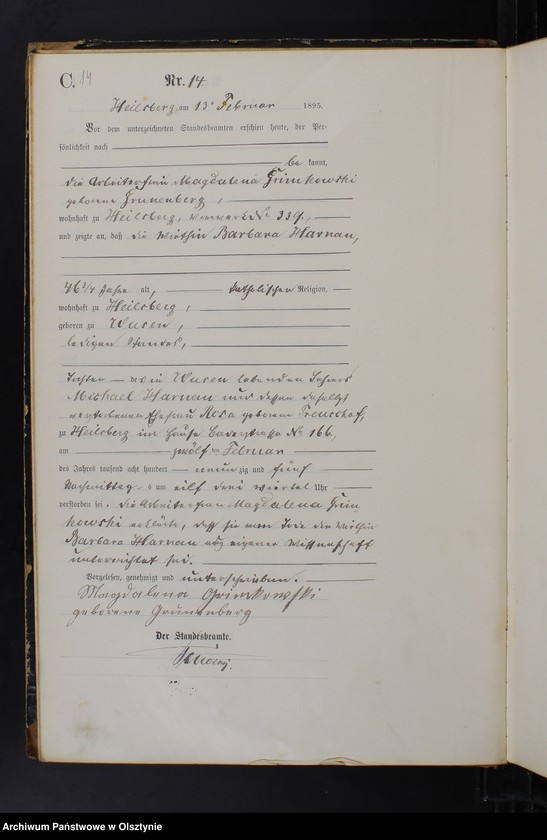 C. 14
Nr. 14.
Heilsberg, am 13ᵗ Februar 1895.
Vor dem unterzeichneten Standesbeamten erschien heute, der Per-
sönlichkeit nach
be kannt,
die Arbeiterfrau Magdalena Grimkowski
geborene Grunenberg,
wohnhaft zu Heilsberg, No 339,
und zeigte an, daß die Wirthin Barbara Harnau,
46 3/4 Jahre alt, katholischen Religion,
wohnhaft zu Heilsberg,
geboren zu Wusen,
ledigen Standes,
Tochter des in Wusen lebenden
Michael Harnau und dessen daselbst
verstorbenen Ehefrau Rosa geborene
zu Heilsberg im Hause No 166,
am zwölften Februar
des Jahres tausend acht hundert neun zig und fünf
Nachmittags um eilf drei viertel Uhr
verstorben sei. Die Arbeiterfrau Magdalena Grim-
kowski erklärte, daß sie vom Tode der Wirthin
Barbara Harnau aus eigener Wissenschaft
unterrichtet sei.
Vorgelesen, genehmigt und unterschrieben.
Magdalena Grimkowski
geborene Grunenberg
Der Standesbeamte.
Archiwum Państwowe w Olsztynie